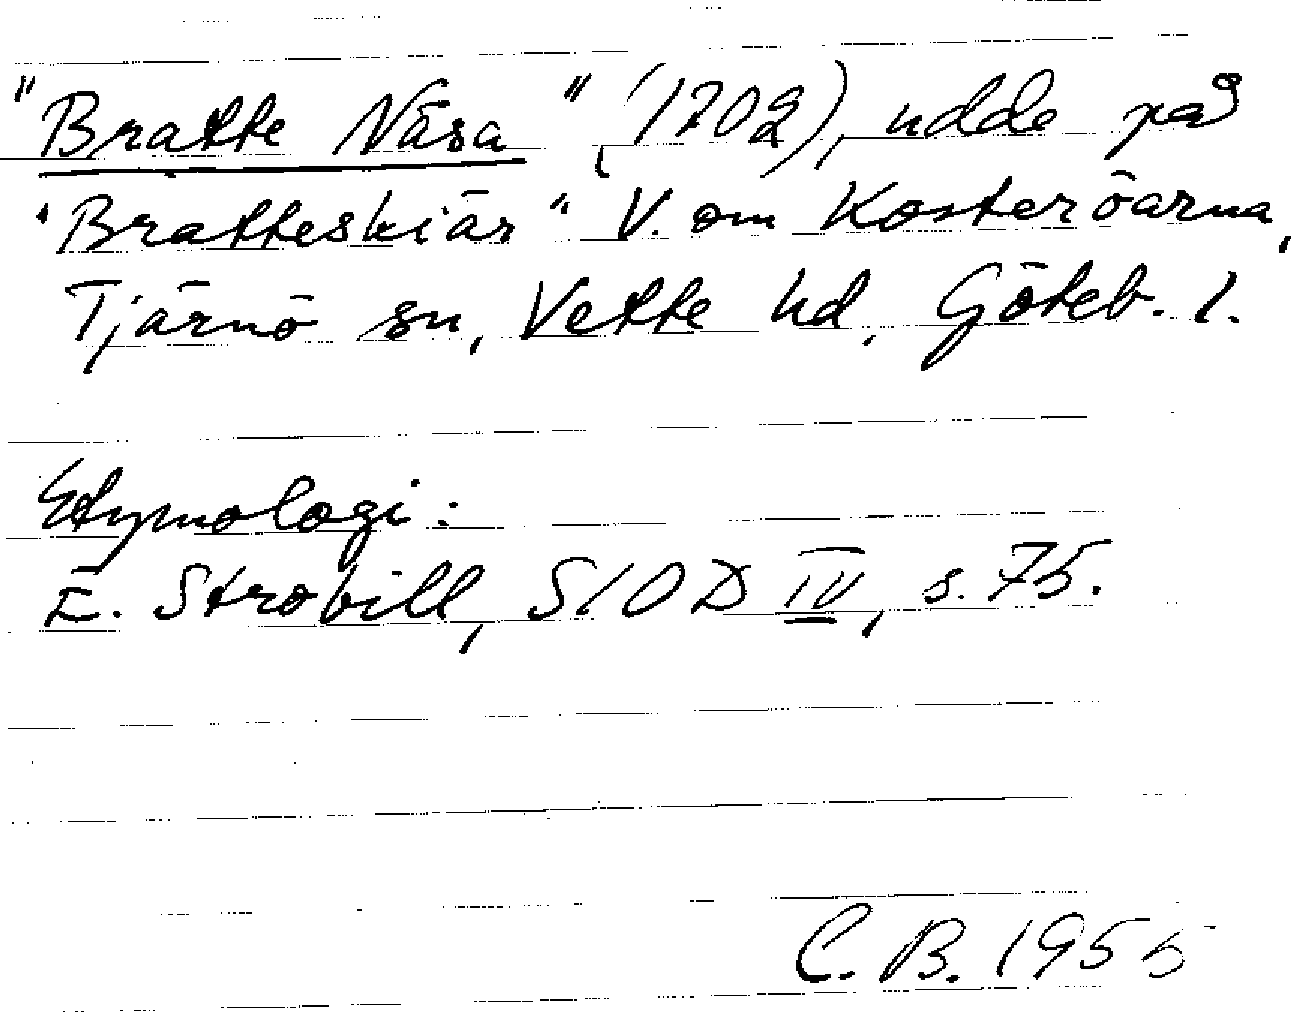 "Bratte Näsa" (1702), udde på
"Bratteskiär" V. om Kosteröarna,
Tjärnö sn, Vette hd, Göteb. l.
Etymologi:
E. Strobill, SIOD IV, s. 75.
C. B. 1955